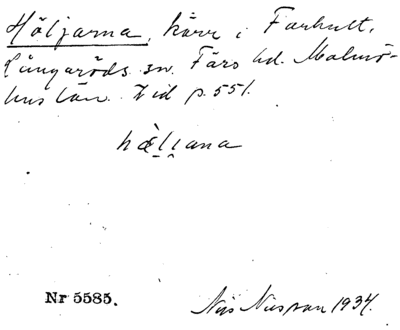 Höljarna, kärr i Farhult,
Långaröds sn. Färs hd. Malmö-
hus län. Vid p. 551.
hæ̀l̥i̯ana
Nr 5585.
Nils Nilsson 1934.